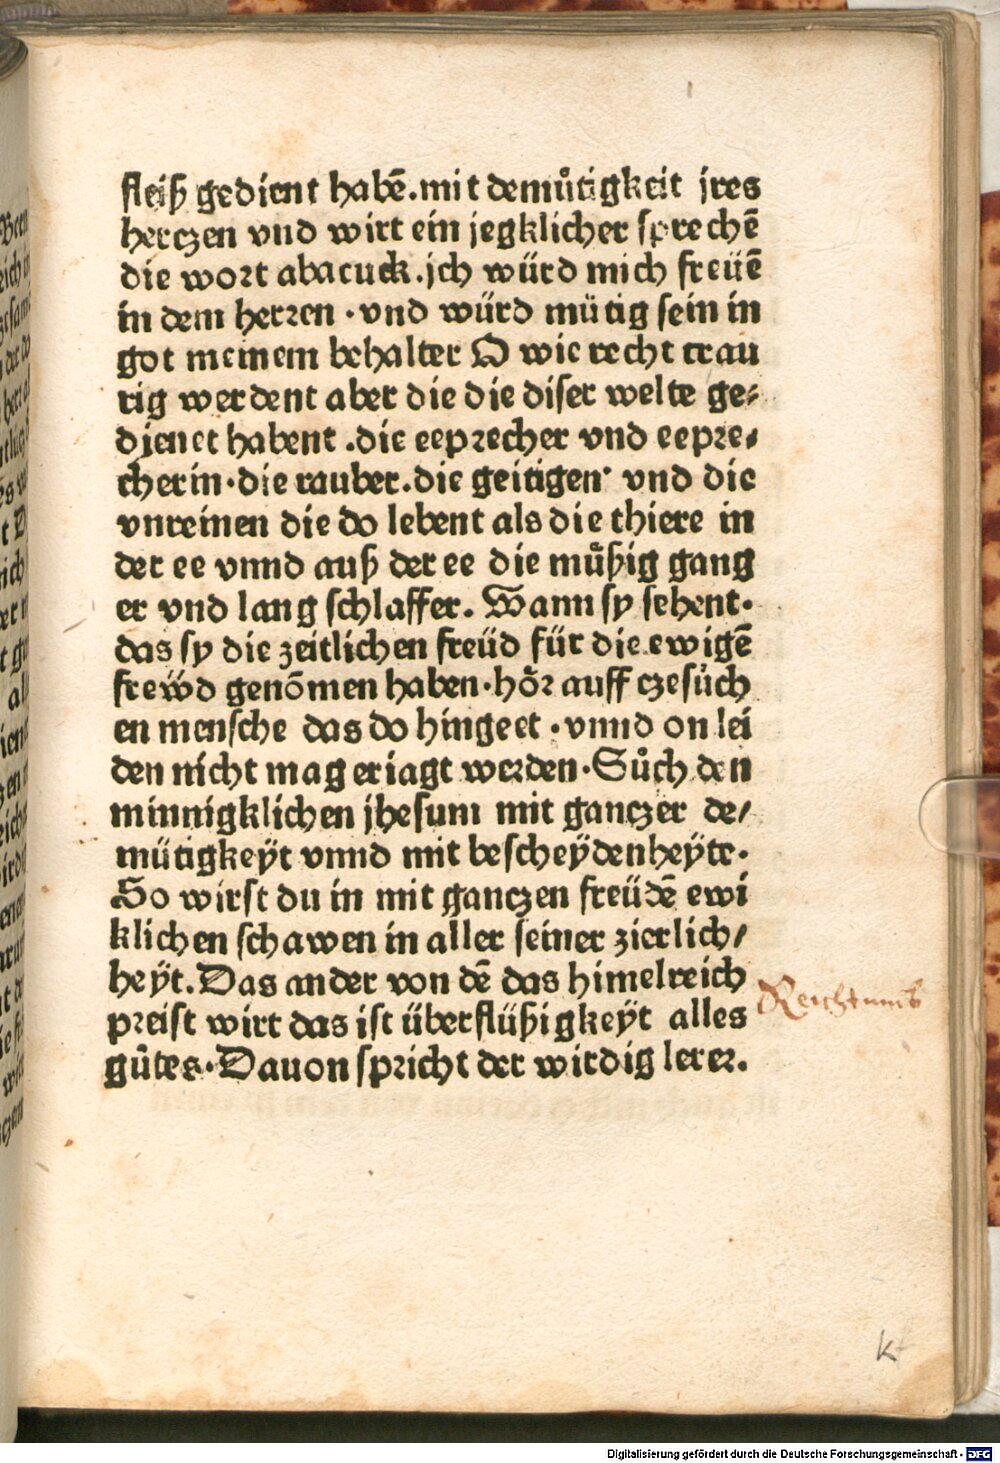 fleiß gedient habē.mit demůtigkeit jres
herczen vnd wirt ein jegklicher sprechē
die wort abacuck.jch würd mich freüē
in dem herren·vnd würd mütig sein in
got meinem behalter O wie recht trau
rig werdent aber die die diser welte ge⸗
djenet habent.die eeprecher vnd eepre⸗
cherin·die rauber.die geitigen· vnd die
vnreinen die do lebent als die thiere in
der ee vnnd auß der ee die můßig gang
er vnd lang schlaffer. Wann sy sehent·
das sy die zeitlichen freüd für die ewigē
frewd genōmen haben·hőr auff czesůch
en mensche das do hingeet·vnnd on lei
den nicht mag eriagt werden·Sůch den
minnigklichen jhesum mit ganczer de⸗
mütigkeÿt vnnd mit bescheÿdenheÿte·
So wirst du in mit ganczen freüdē ewi
klichen schawen in aller seiner zierlich⸗
heÿt.Das ander von dē das himelreich
preist wirt das ist überflüßigkeÿt alles
gůtes·Dauon spricht der wirdig lerer.
Reichtumb
k
Digitalisierung gefördert durch die Deutsche Forschungsgemeinschaft - DFG